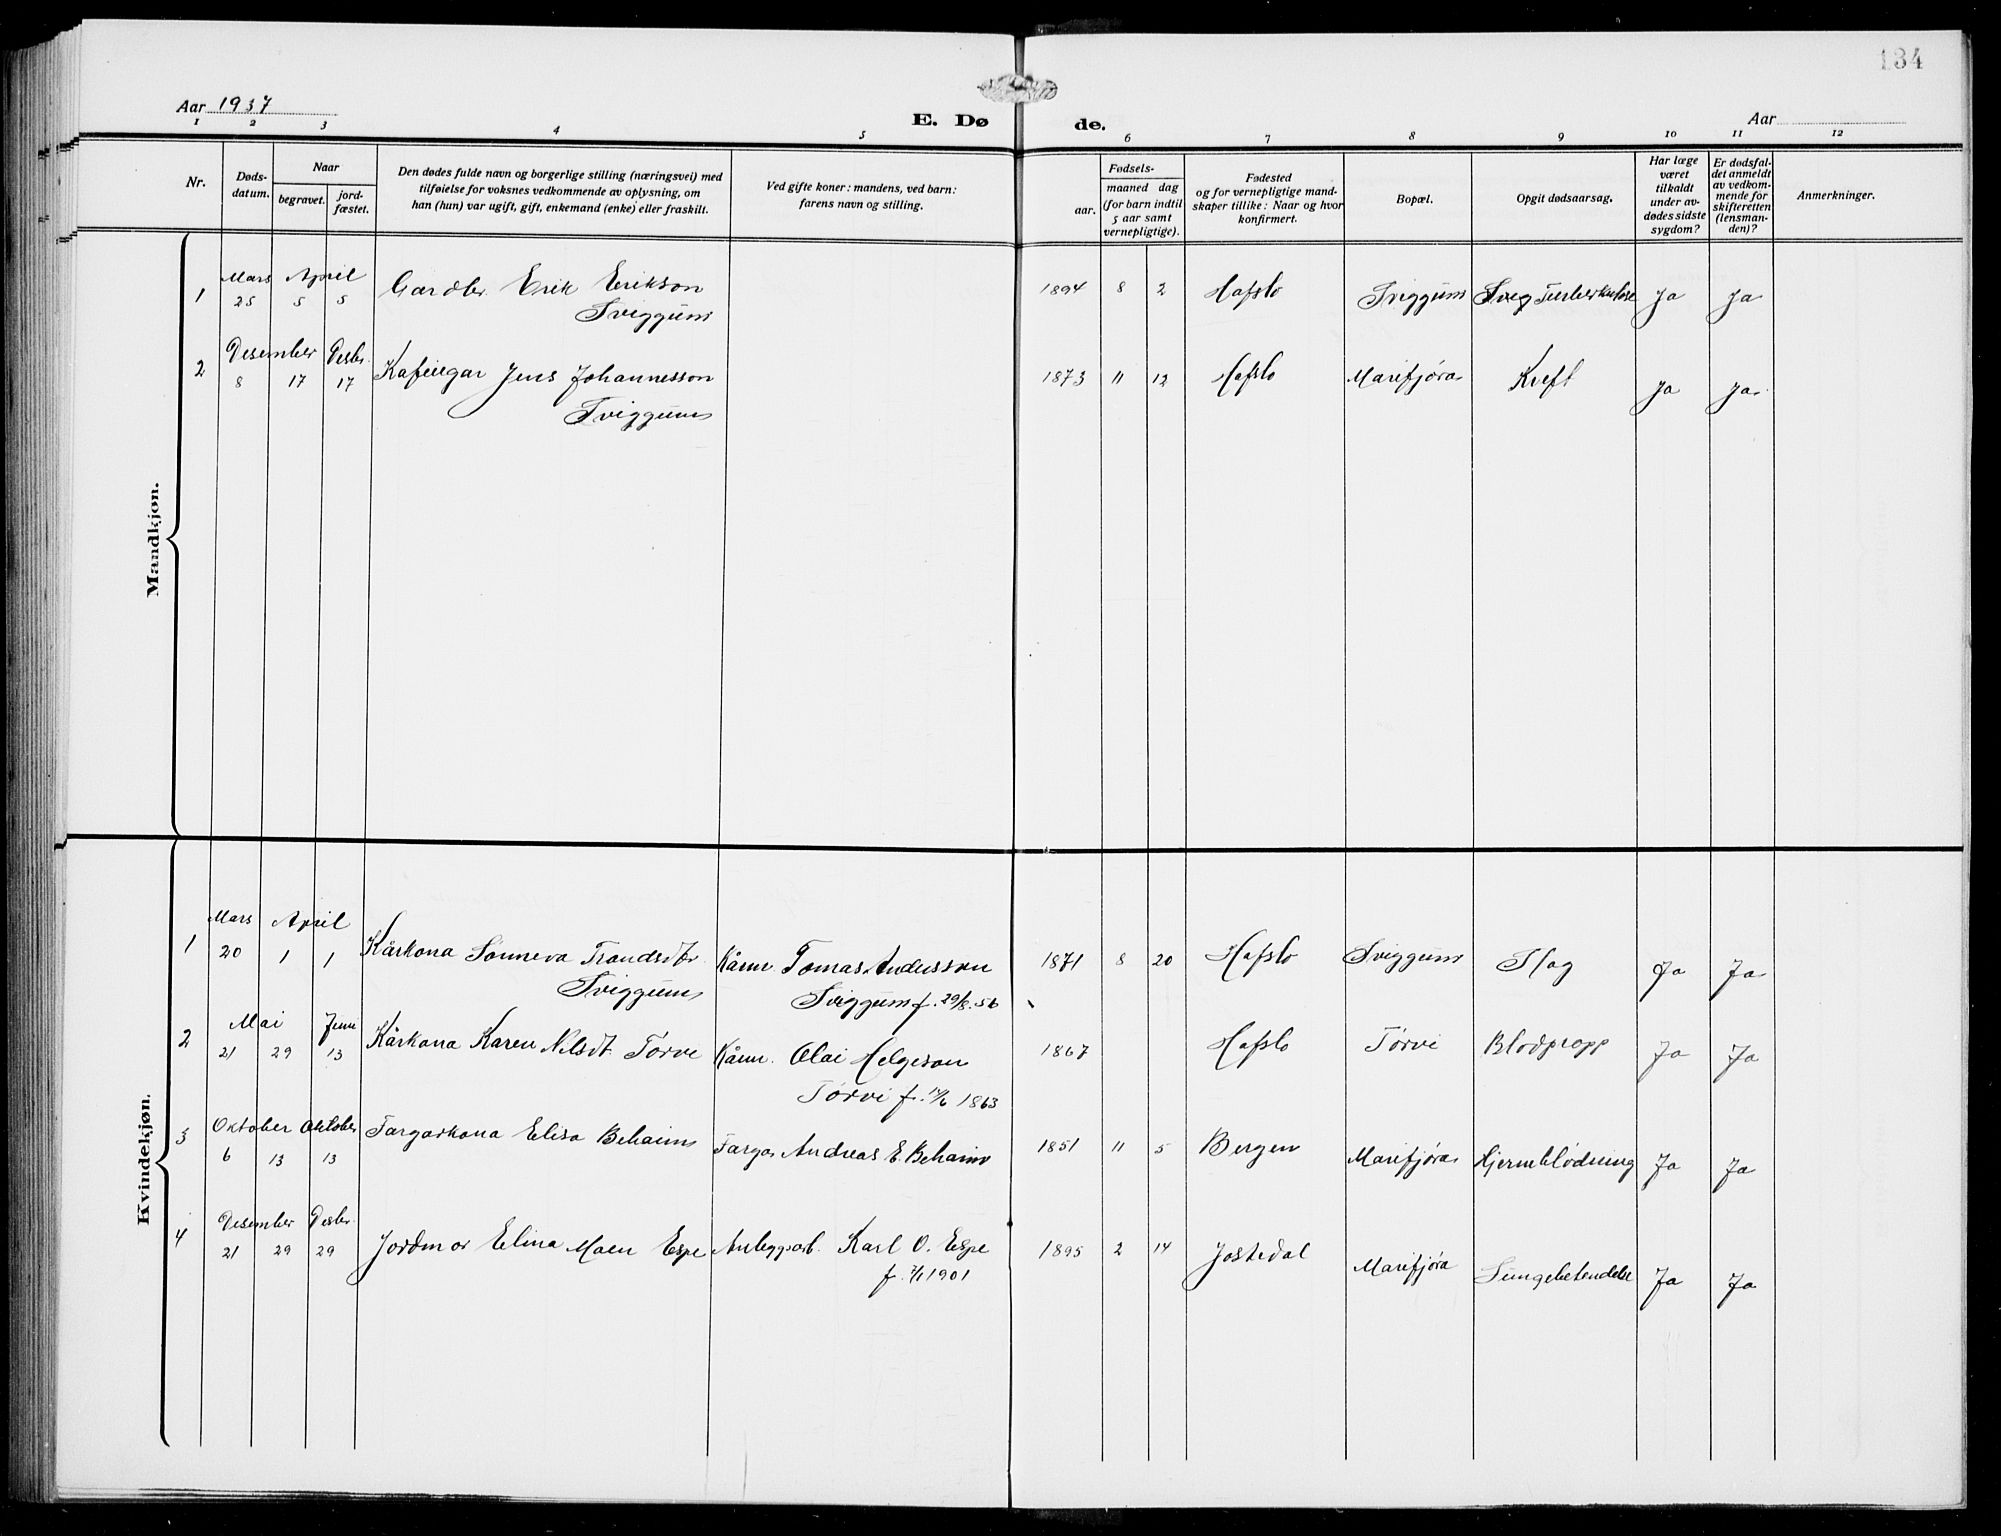 134
Aar 1937
E. Dø de.
Aar
1 2 3 4 5 6 7 8 9 10 11 12
Nr.
Døds-
datum.
Naar
begravet.
jord-
fæstet.
Den dødes fulde navn og borgerlige stilling (næringsvei) med
tilføielse for voksnes vedkommende av oplysning, om
han (hun) var ugift, gift, enkemand (enke) eller fraskilt.
Ved gifte koner: mandens, ved barn:
farens navn og stilling.
Fødsels-
aar.
maaned dag
(for barn indtil
5 aar samt
vernepligtige).
Fødested
og for vernepligtige mand-
skaper tillike: Naar og hvor
konfirmert.
Bopæl.
Opgit dødsaarsag.
Har læge
været
tilkaldt
under av-
dødes sidste
sygdom?
Er dødsfal-
det anmeldt
av vedkom-
mende for
skifteretten
(lensman-
den)?
Anmerkninger.
Maandkjøn.
Mars April
1 25 5 5 Gardbr. Erik Erikson 1894 8 2 Hafslo Tviggum Tuberkulose Ja Ja
Tviggum
Desember Desbr.
2 8 17 17 Kafeeigar Jens Johannesson 1873 11 12 Hafslo Marifjøra Kreft Ja Ja
Tviggum
Kvindekjøn.
Mars April
1 20 1 1 Kårkona Sønneva Trondsdtr. Kårm. Tomas Andersson 1871 8 20 Hafslo Tviggum Slag Ja Ja
Tviggum Tviggum f. 29/8. 56
Mai Juni
2 21 29 13 Kårkona Karen Nilsdt. Tørvi Kårm. Olai Helgeson 1867 Hafslo Tørvi Blodpropp Ja Ja
Tørvi f. 1863
Oktober Oktober
3 6 13 13 Fargarkona Elisa Behaim Fargar Andreas E. Behaim 1851 11 5 Bergen Marifjøra Hjerneblødning Ja Ja
Desember Desbr.
4 21 29 29 Jordmor Elina Moen Espe Anleggsarb. Karl O. Espe 1895 2 14 Jostedal Marifjøra Lungebetendelse Ja Ja
f. 1901